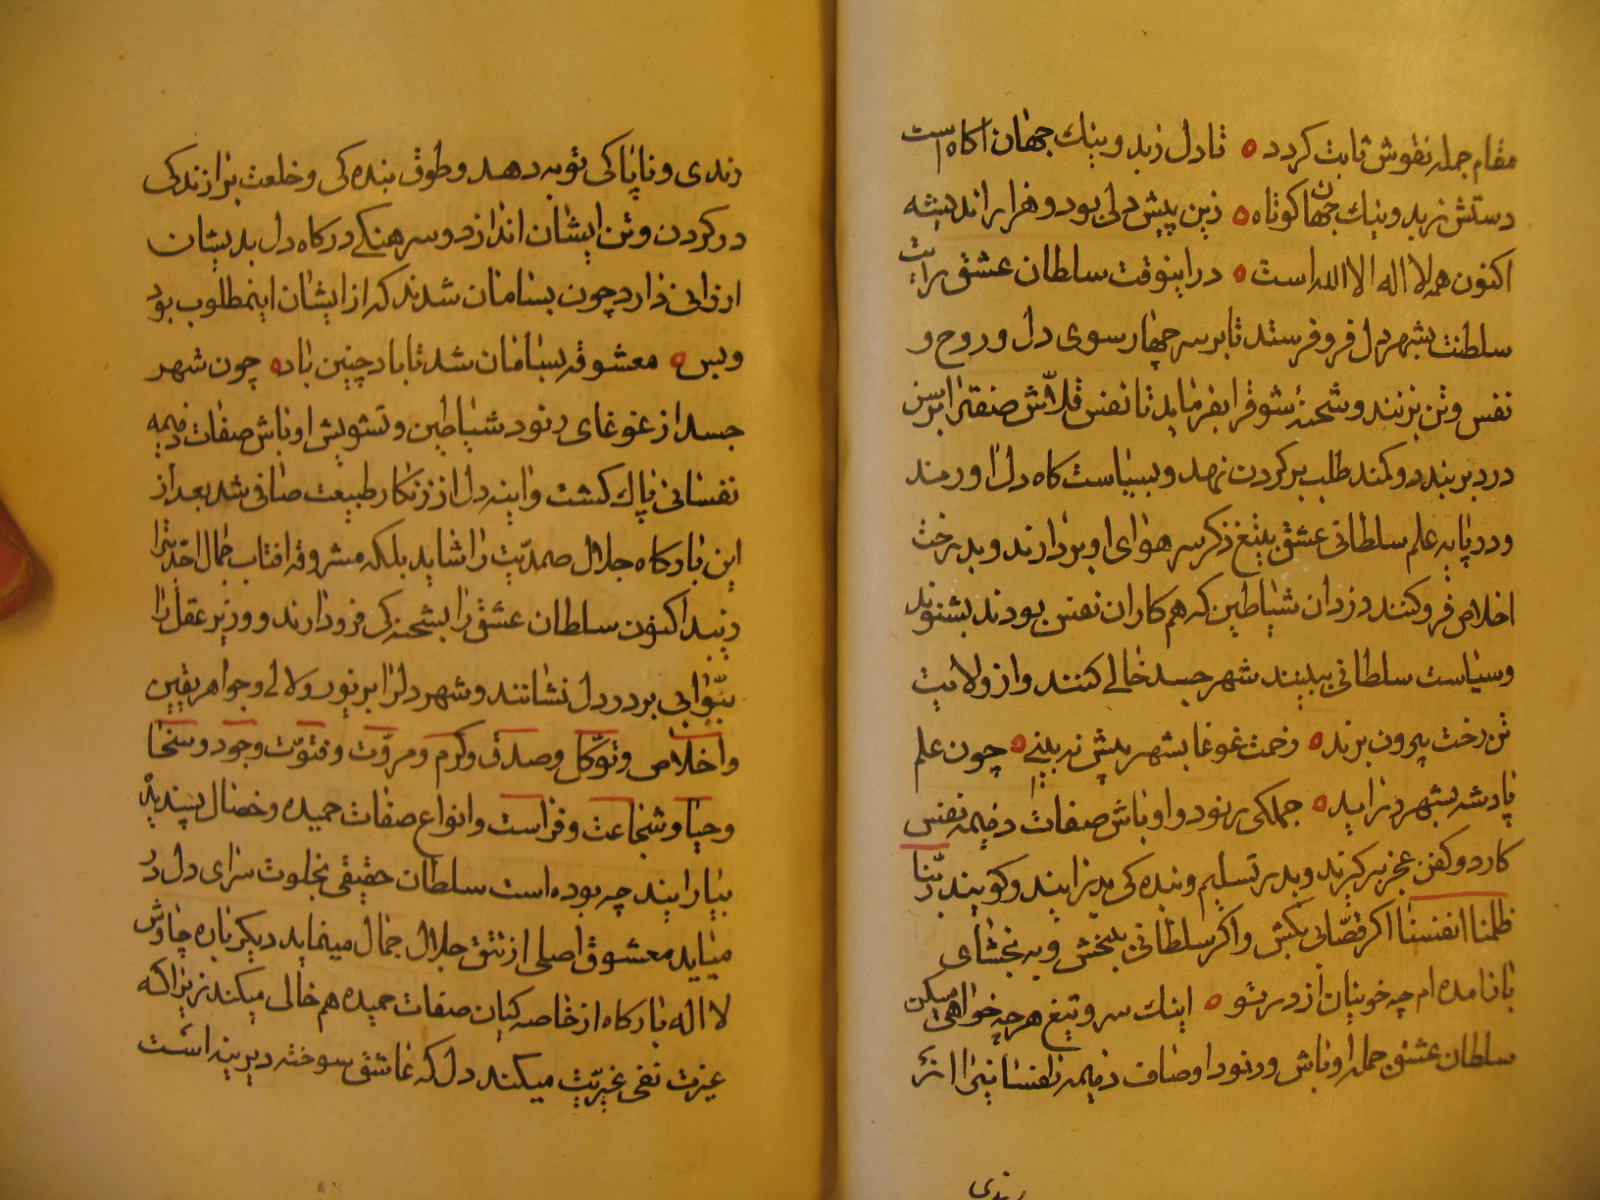 مقام جمله نفوش ثابت کردد ٥ تا دل ز بد و نیك جهان آکاه است
دستش ز بد و نیك جهان کوتاه ٥ زین پیش دلی بود و هزار اندیشه
اکنون همه لا اله الا الله است ٥ در اینوقت سلطان عشق رایت
سلطنت بشهر دل فرو فرستد تا بر سر چهار سوی دل و روح و
نفس و تن بزنند و شحنهٔ شوق را بفرماید تا نفس قلّاش صفت را برسن
درد بر بندد و کند طلب بر کردن نهد و بسیاست کاه دل اورند
و در پایه علم سلطانی عشق بتیغ ذکر سر هوای او بردارند و بدرخت
اخلاص فرو کنند دزدان شیاطین که هم کاران نفس بودند بشنوند
و سیاست سلطانی ببینند شهر جسد خالی کنند و از ولایت
تن رخت بیرون برند ٥ زحمت غوغا بشهر بیش نه بینی ٥ چون علم
پادشه بشهر دراید ٥ جملکی رنود و اوباش صفات ذمیمه نفس
کارد و کفن عجز بر کیرند و بدر تسلیم و بنده کی در ایند و کویند ربّنا
ظلمنا انفسنا اکر قصّابی بکش و اکر سلطانی ببخش و به بخشای
باز امده ام چه خونیان از در تو ٥ اینك سر و تیغ هر چه خواهی میکن
سلطان عشق جمله اوباش و رنود اوصاف ذمیمه نفسانی را از
رندی
رندی و ناپاکی توبه دهد و طوق بنده کی و خلعت برازندکی
در کردن و تن ایشان اندازد و سرهنکی درکاه دل بدیشان
ارزانی دارد چون بسامان شدند که از ایشان اینمطلوب بود
و بس ٥ معشوقه بسامان شد تا باد چنین باد ٥ چون شهر
جسد از غوغای رنود شیاطین و تشویش اوباش صفات ذمیمه
نفسانی پاك کشت و اینه دل از زنکار طبیعت صافی شد بعد از
این بارکاه جلال صمدیّت را شاید بلکه مشروقه افتاب جمال احدّیترا
زیبد اکنون سلطان عشق را بشحنه کی فرو دارند و وزیر عقل را
ببوّابی بر در دل نشانند و شهر دلرا بر نور و لالی و جواهر یقین
و اخلاص و توکّل و صدق و کرم و مروّت و فتوّت و جود و سخا
و حیا و شجاعت و فراست و انواع صفات حمیده و خصال پسندیدهٔ
بیارایند چه بوده است سلطان حقیقی بخلوت سرای دل در
میاید معشوق اصلی از تتق جلال جمال مینماید دیکر باره چاوش
لا اله بارکاه از خاصه کیان صفات حمیده هم خالی میکند زیرا که
عزت نفی غیریّت میکند دل که عاشق سوخته دیرینه است